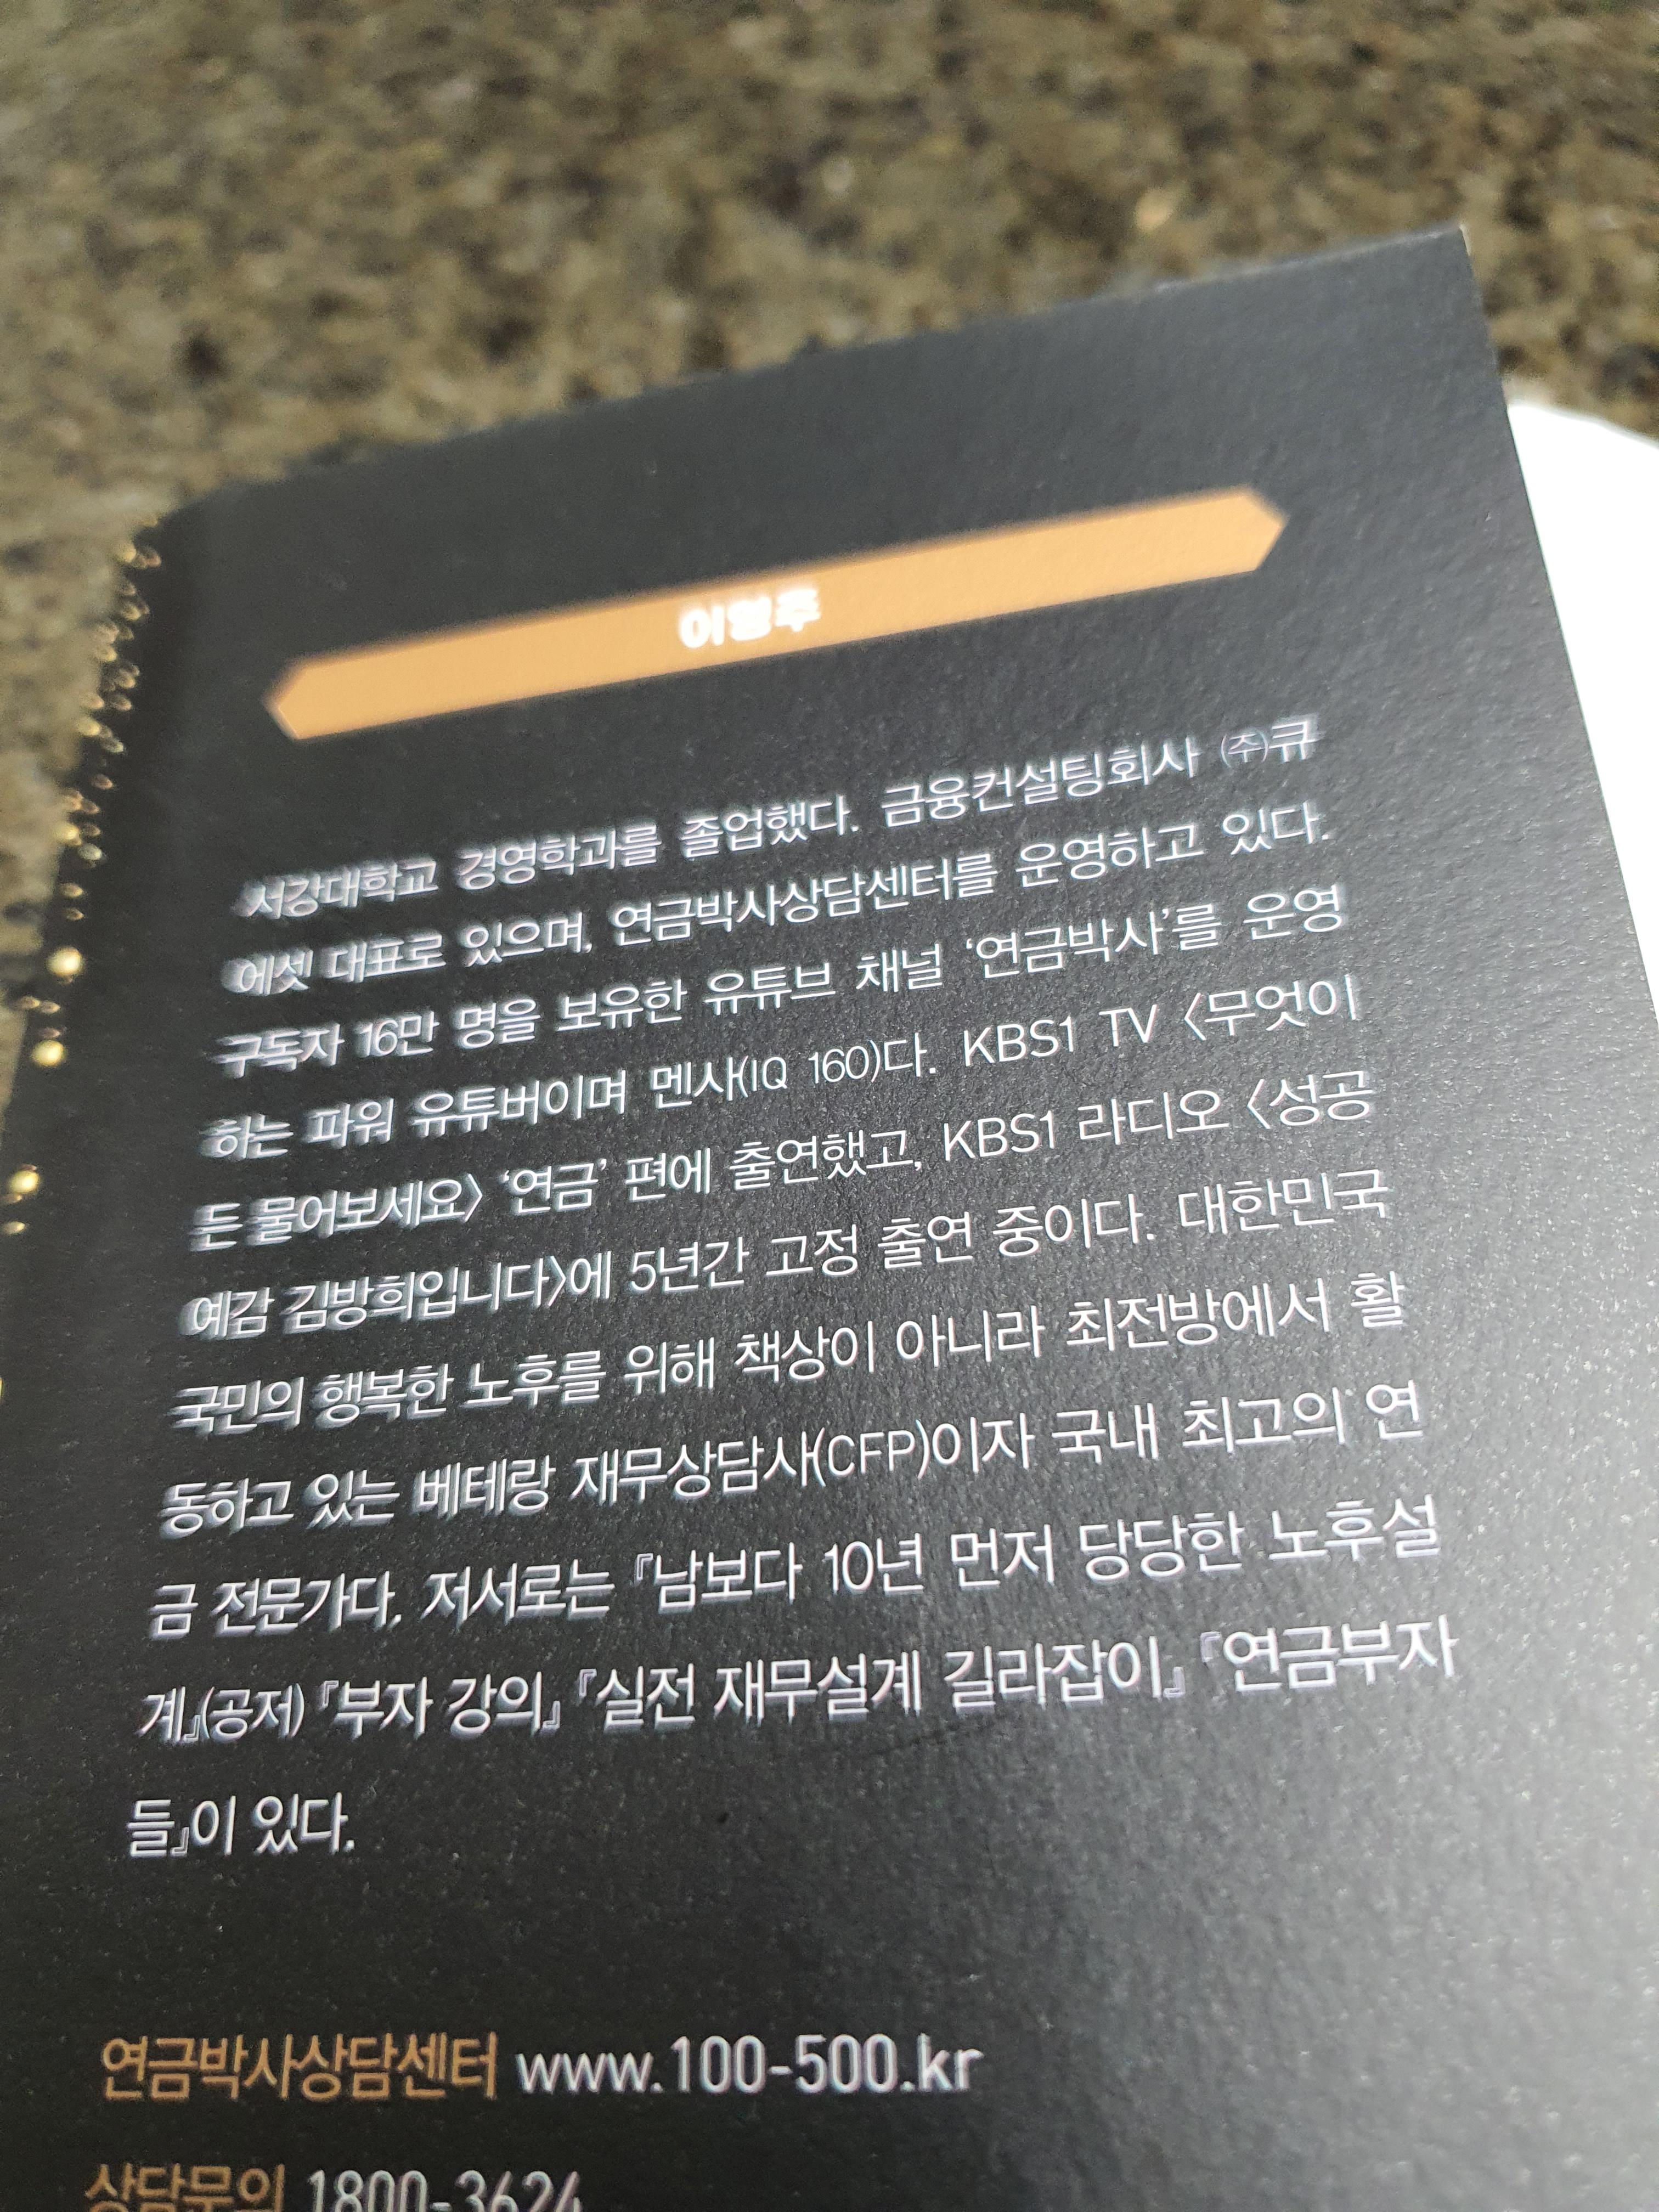 이영주
서강대학교 경영학과를 졸업했다. 금융컨설팅회사 ㈜큐
에셋 대표로 있으며, 연금박사상담센터를 운영하고 있다.
구독자 16만 명을 보유한 유튜브 채널 ‘연금박사’를 운영
하는 파워 유튜버이며 멘사(IQ 160)다. KBS1 TV 〈무엇이
든 물어보세요〉 ‘연금’ 편에 출연했고, KBS1 라디오 〈성공
예감 김방희입니다〉에 5년간 고정 출연 중이다. 대한민국
국민의 행복한 노후를 위해 책상이 아니라 최전방에서 활
동하고 있는 베테랑 재무상담사(CFP)이자 국내 최고의 연
금 전문가다. 저서로는 『남보다 10년 먼저 당당한 노후설
계』(공저) 『부자 강의』 『실전 재무설계 길라잡이』 『연금부자
들』이 있다.
연금박사상담센터 www.100-500.kr
상담문의 1800-3624